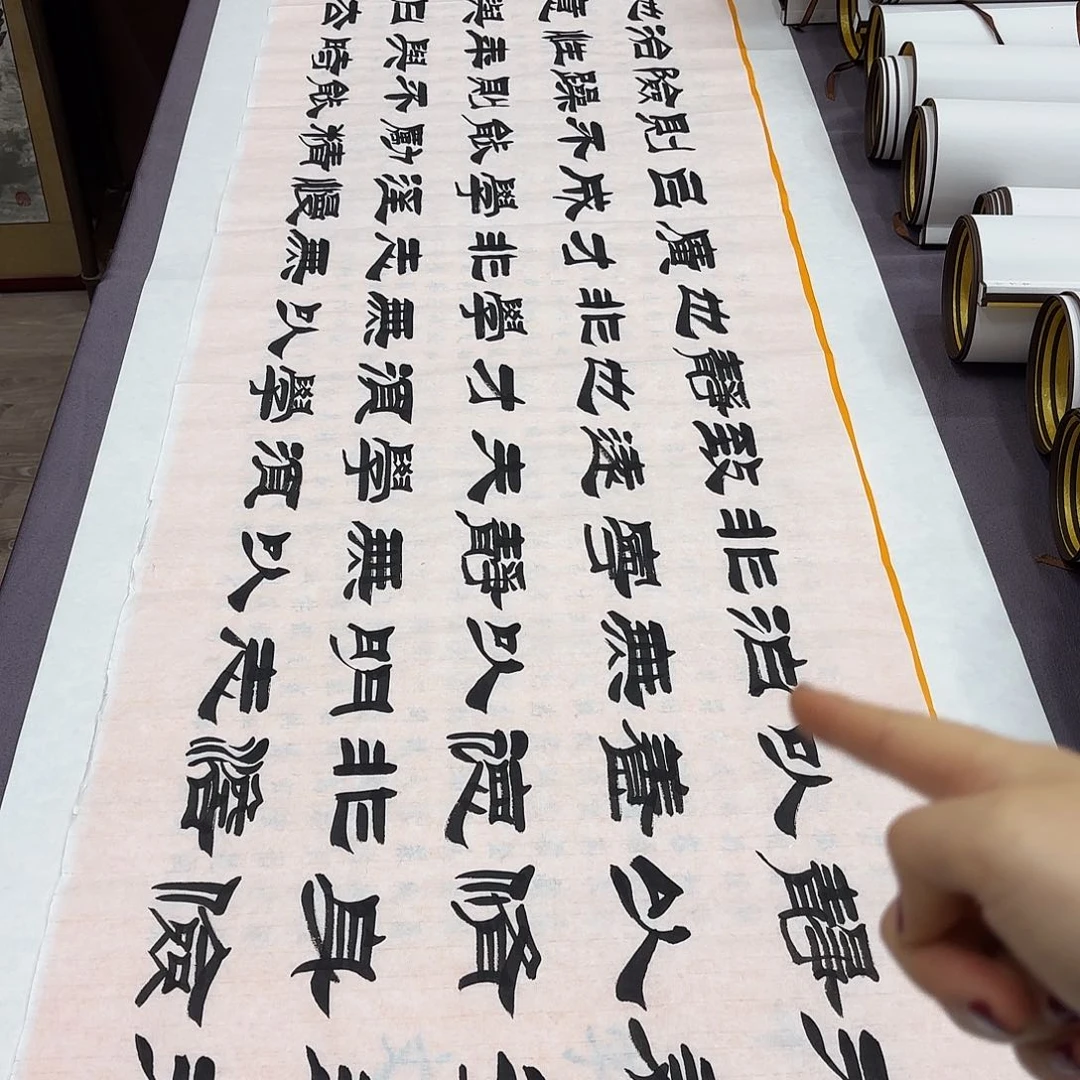 靜以脩身險
以養德非澹
泊無以明志
非寧靜無以
致遠夫學須
靜也才須學
也非學無以
廣才非志無
㠯成學淫慢
則不能勵精
險躁則不能
治性年與時
意與日去